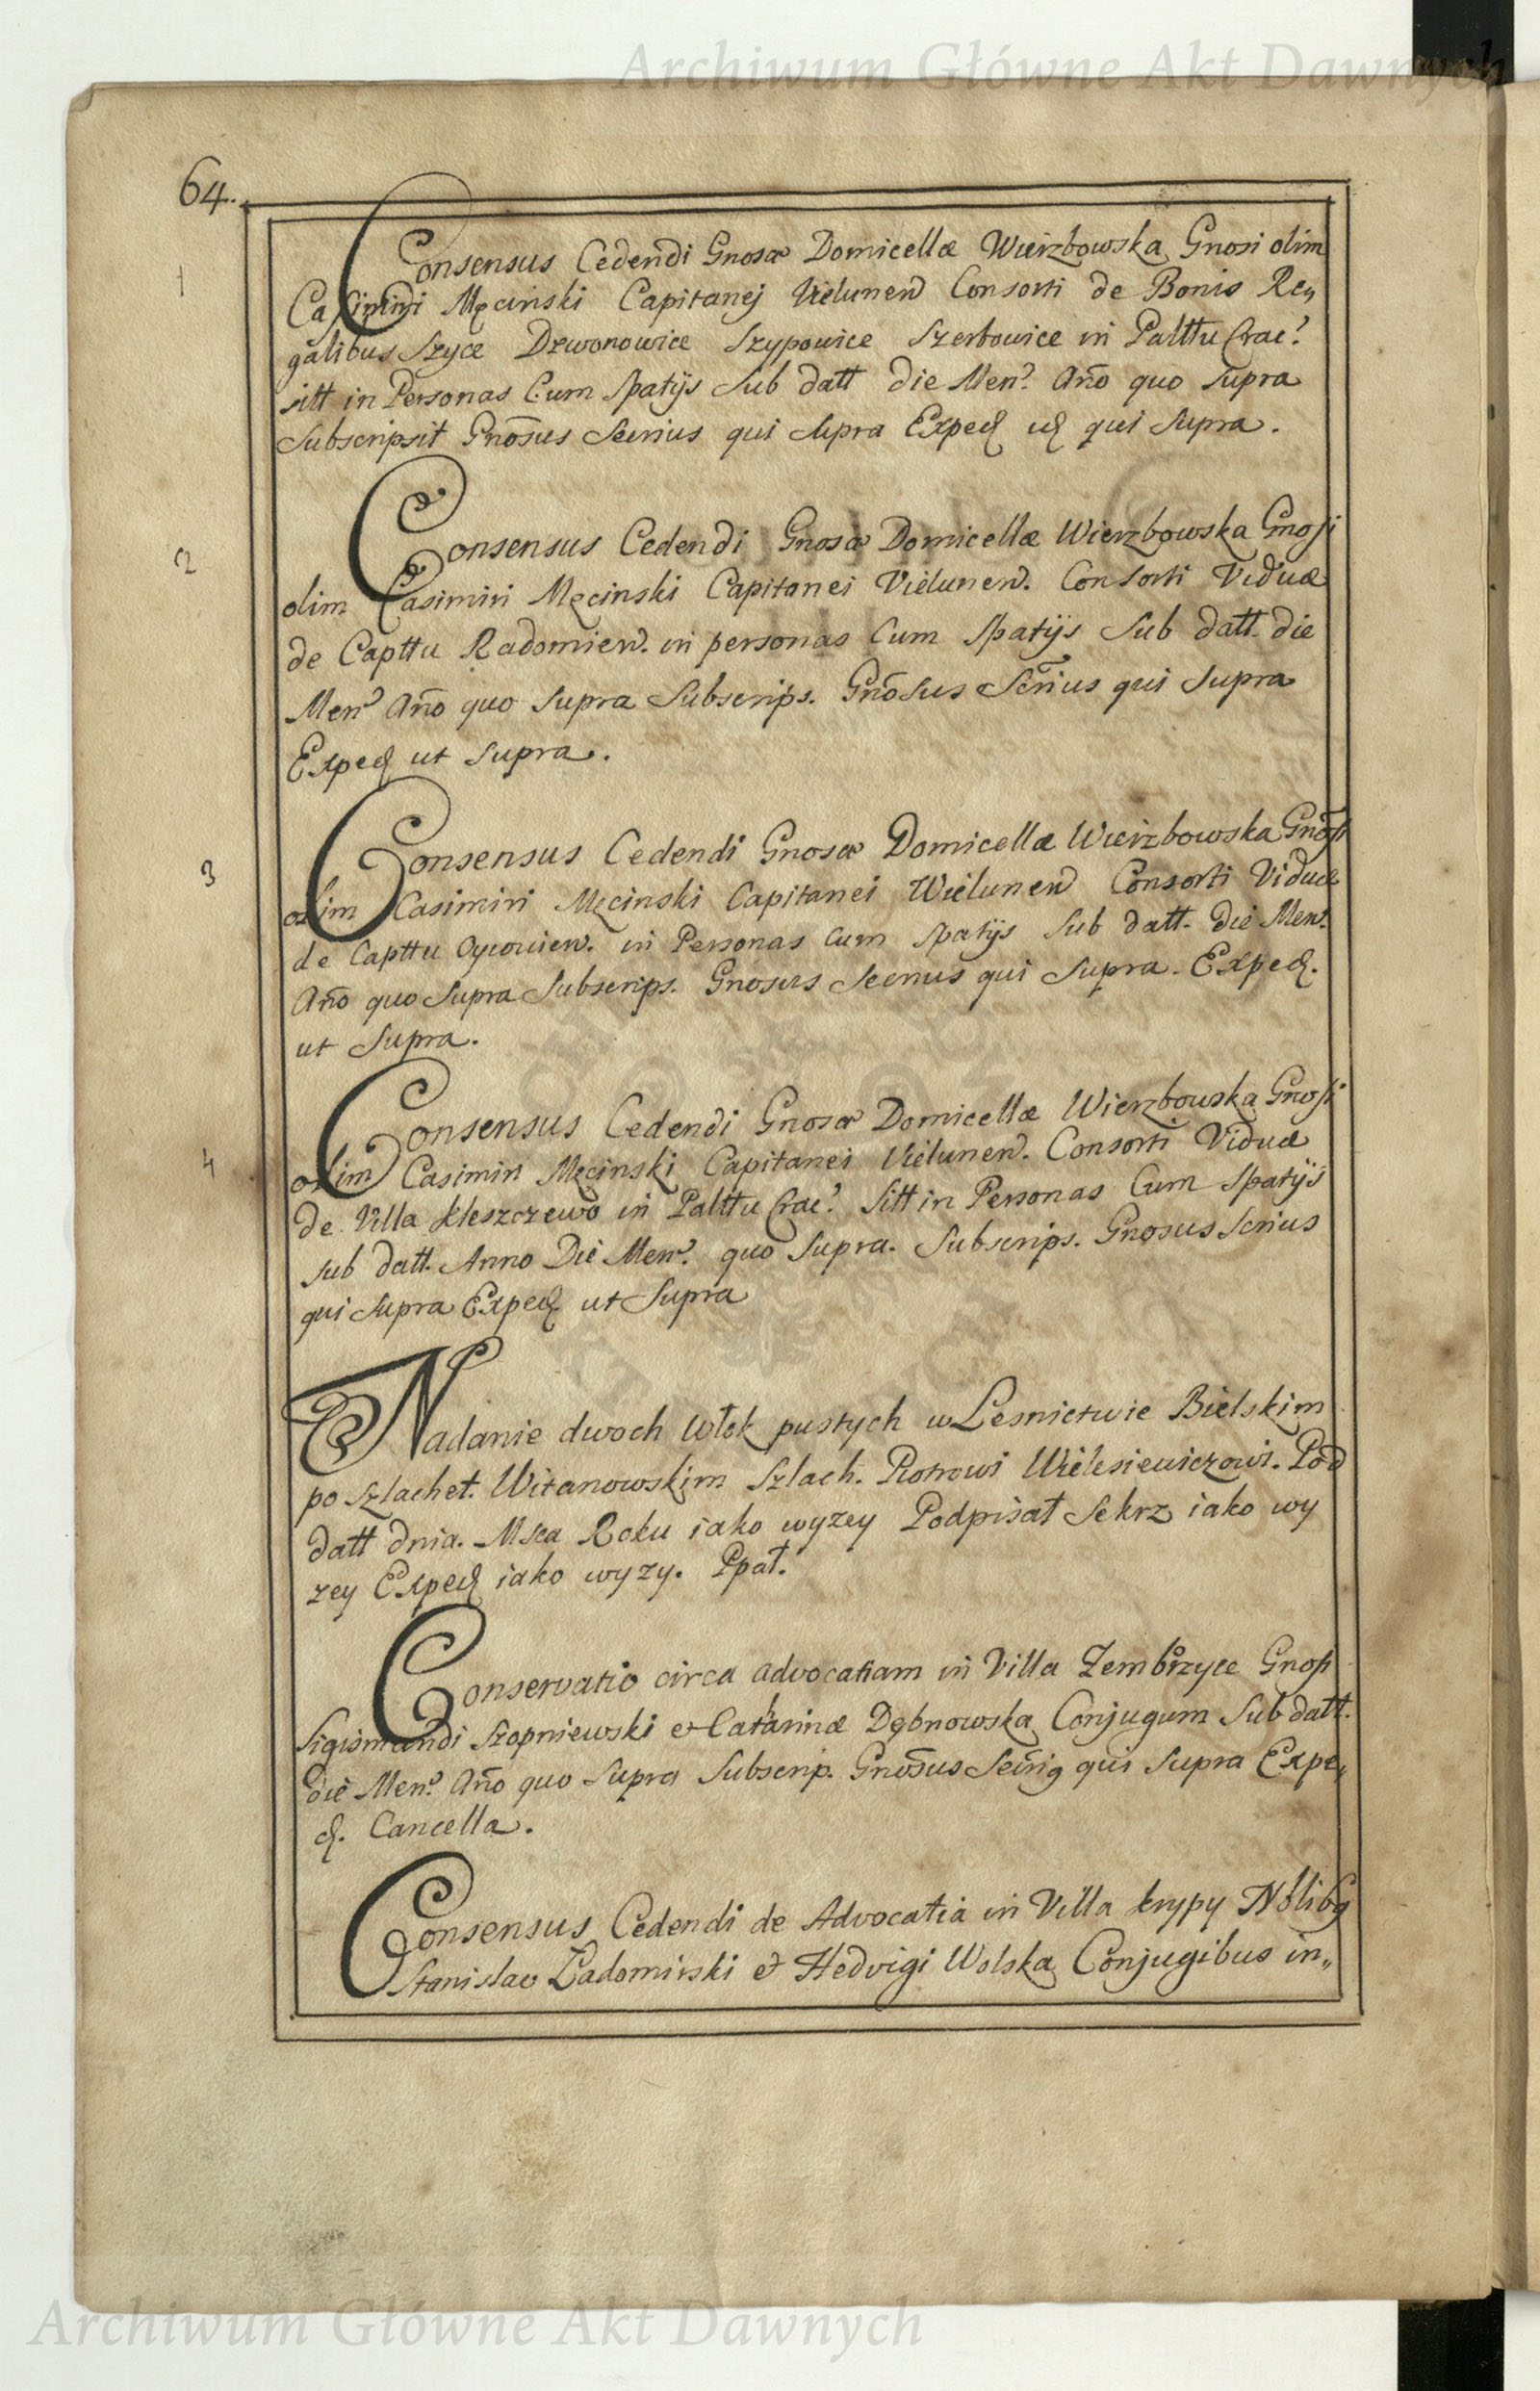 Archiwum Główne Akt Dawnych
64.
1
Consensus Cedendi Gnosæ Domicellæ Wierzbowska Gnosi olim
Casimiri Męcinski Capitanej Vielunen Consorti de Bonis Re„
galibus Szyce Dzwonowice Szypowice Szerbowice in Palttu Crac.
sitt in Personas Cum Spatijs Sub datt die Men. Año quo supra
Subscripsit Gnõsus Secrius qui supra Exped uĘ qui supra.
2
Consensus Cedendi Gnosæ Domicellæ Wierzbowska Gnosi
olim Casimiri Męcinski Capitanei Vielunen. Consorti Viduæ
de Capttu Radomien. in personas Cum Spatijs Sub datt. die
Men. Año quo Supra Subscrips. Gnõsus Scrius qui supra
Exped ut supra.
3
Consensus Cedendi Gnosæ Domicellæ Wierzbowska Gnosi
olim Casimiri Męcinski Capitanei Wielunen Consorti Viduæ
de Capttu Ogowien. in Personas cum spatijs sub datt. die Men.
Año quo Supra Subscrips. Gnosus Secrius qui Supra. Exped.
ut Supra.
4
Consensus Cedendi Gnosæ Domicellæ Wierzbowska Gnosi
olim Casimiri Męcinski Capitanei Vielunen. Consorti Viduæ
de Villa Kleszczewo in Palttu Crac. Sitt in Personas Cum Spatijs
sub datt. Anno Die Men. quo Supra. Subscrips. Gnosus Scrius
qui Supra Exped. ut Supra
Nadanie dwoch włok pustych w Lesnictwie Bielskim
po szlachet. Witanowskim Szlach. Piotrowi Wielesiewiczowi. Pod
datt dnia. Msca Roku iako wyzey Podpisał Sekrz iako wy
zey Exped iako wyzy. Ppał.
Conservatio circa advocatiam in Villa Zembrzyce Gnosi
Sigismundi Szopniewski et Catarinæ Dębnowska Conjugum Sub datt.
die Men. Año quo Supra Subscrip. Gnõsus Secrig qui supra Expe„
d. Cancella.
Consensus Cedendi de Advocatia in Villa krypy Nõlibg
Stanislao Ladomirski et Hedvigi Wolska Conjugibus in„
Archiwum Główne Akt Dawnych